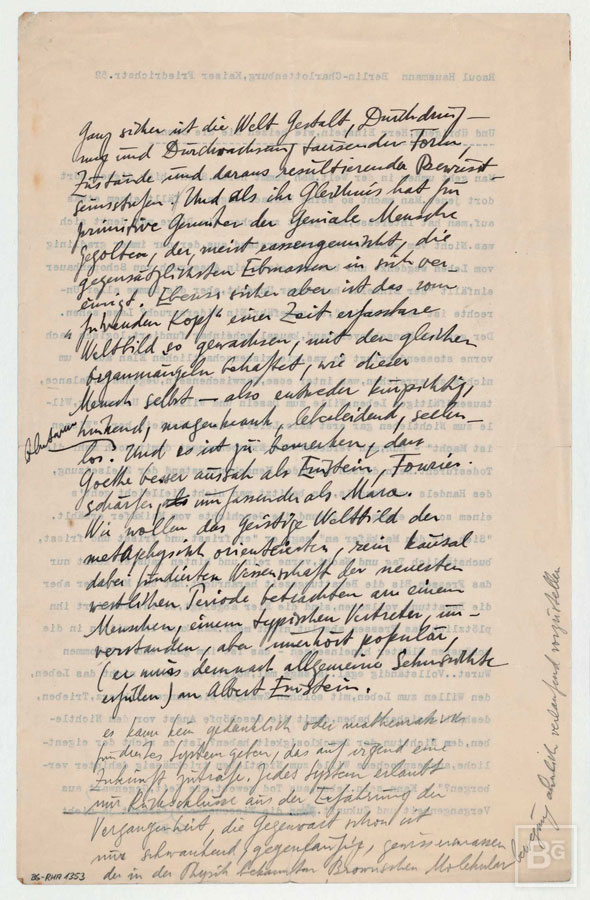 Ganz sicher ist die Welt Gestalt, Durchdring-
ung und Durchwachsung tausender Form,
Zustände und daraus resultierender Bewusst-
seinsstufen. Und als ihr Gleichnis hat für
primitive Gemüter der Geniale Mensch
gegolten, der, meist rassengemischt, die
gegensätzlichsten Erbmassen in sich ver-
einigt. Ebenso sicher aber ist das vom
"führenden Kopf" einer Zeit erfassbare
Weltbild so gewachsen, mit den gleichen
Organmängeln behaftet, wie dieser
Mensch selbst — also entweder kurzsichtig,
hinkend, magenkrank, leberleidend, seelen-
los. Und es ist zu bemerken, dass
Goethe besser aussah als Einstein, Fourier
schärfer umfassender als Marx.
Wir wollen das geistige Weltbild der
metaphysisch orientierten, rein kausal
dabei fundierten Wissenschaft der neuesten
westlichen Periode betrachten an einem
Menschen, einem typischen Vertreter, un-
verstanden, aber unerhört populär,
(er muss demnach allgemeine Sehnsüchte
erfüllen) an Albert Einstein.
es kann kein gedanklich oder mathematisch
fundiertes System geben, das auf irgend eine
Zukunft zuträfe. Jedes System erlaubt
nur Rückschlüsse aus der Erfahrung der
Vergangenheit, die Gegenwart schon ist
nur schwankend, gegenläufig, gewissermassen
der in der Physik bekannten Brownschen Molekular
bewegung ähnlich verlaufend vorzustellen
BG-RHA 1353
BG